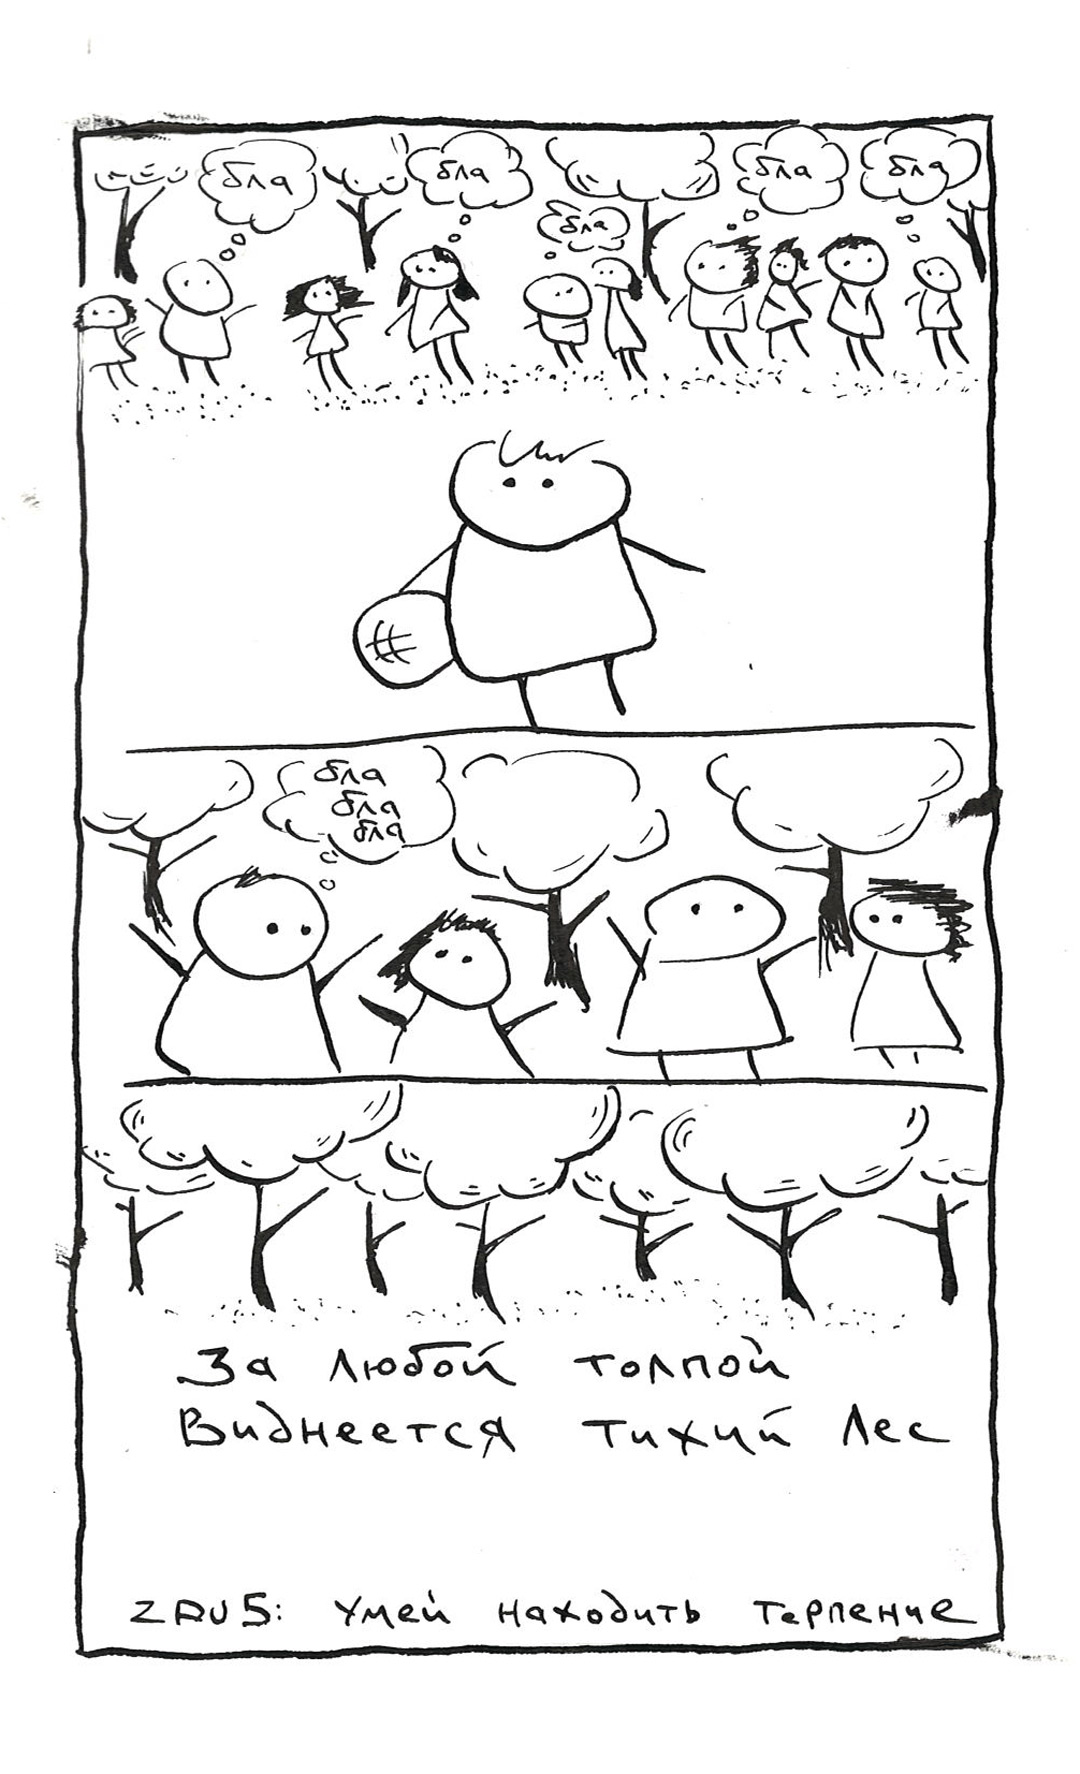 бла
бла
бла
бла
бла
бла
бла
бла
За любой толпой
виднеется тихий лес
ZDU5: умей находить терпение